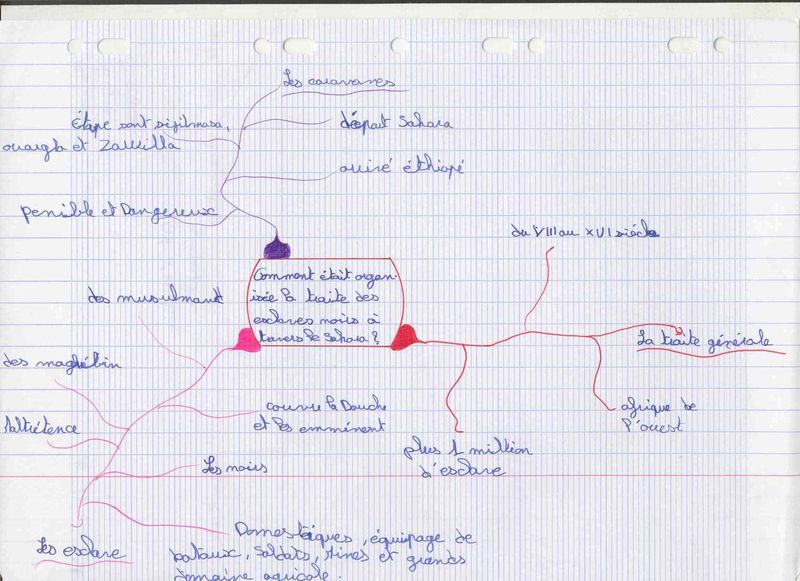 Les caravanes
Étape sont sijilmasa,
ouargla et Zawilla
départ Sahara
arrivé éthiopé
penible et Dangereux
du VIII au XVI siècle
Comment était organ-
isée la traite des
esclaves noirs à
travers le Sahara ?
des musulmans
La traite générale
des maghébin
couvre la Bouche
et les emmènent
afrique de
l'ouest
plus 1 million
d'esclave
Les noirs
Les esclave
Domestiques, équipage de
bataux, Soldats, Mines et grands
domaine agricole.